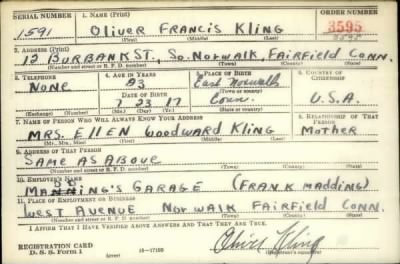 SERIAL NUMBER 1. NAME (Print) ORDER NUMBER
1591 OLIVER FRANCIS KLING 3595
(First) (Middle) (Last)
2. ADDRESS (Print)
12 BURBANK ST., So. NORWALK, FAIRFIELD CONN.
(Number and street or R. F. D. number) (Town) (County) (State)
3. TELEPHONE 4. AGE IN YEARS 5. PLACE OF BIRTH 6. COUNTRY OF CITIZENSHIP
NONE 23 East Norwalk
DATE OF BIRTH (Town or county)
7 23 17 Conn. U.S.A.
(Exchange) (Number) (Mo.) (Day) (Yr.) (State or country)
7. NAME OF PERSON WHO WILL ALWAYS KNOW YOUR ADDRESS 8. RELATIONSHIP OF THAT PERSON
MRS. ELLEN WOODWARD KLING MOTHER
(Mr., Mrs., Miss) (First) (Middle) (Last)
9. ADDRESS OF THAT PERSON
SAME AS ABOVE
(Number and street or R. F. D. number) (Town) (County) (State)
10. EMPLOYER'S NAME
GARAGE (FRANK MADDING)
11. PLACE OF EMPLOYMENT OR BUSINESS
WEST AVENUE NORWALK FAIRFIELD CONN.
(Number and street or R. F. D. number) (Town) (County) (State)
I AFFIRM THAT I HAVE VERIFIED ABOVE ANSWERS AND THAT THEY ARE TRUE.
REGISTRATION CARD
D. S. S. Form 1 (over) 16—17105 Oliver Kling
(Registrant's signature)